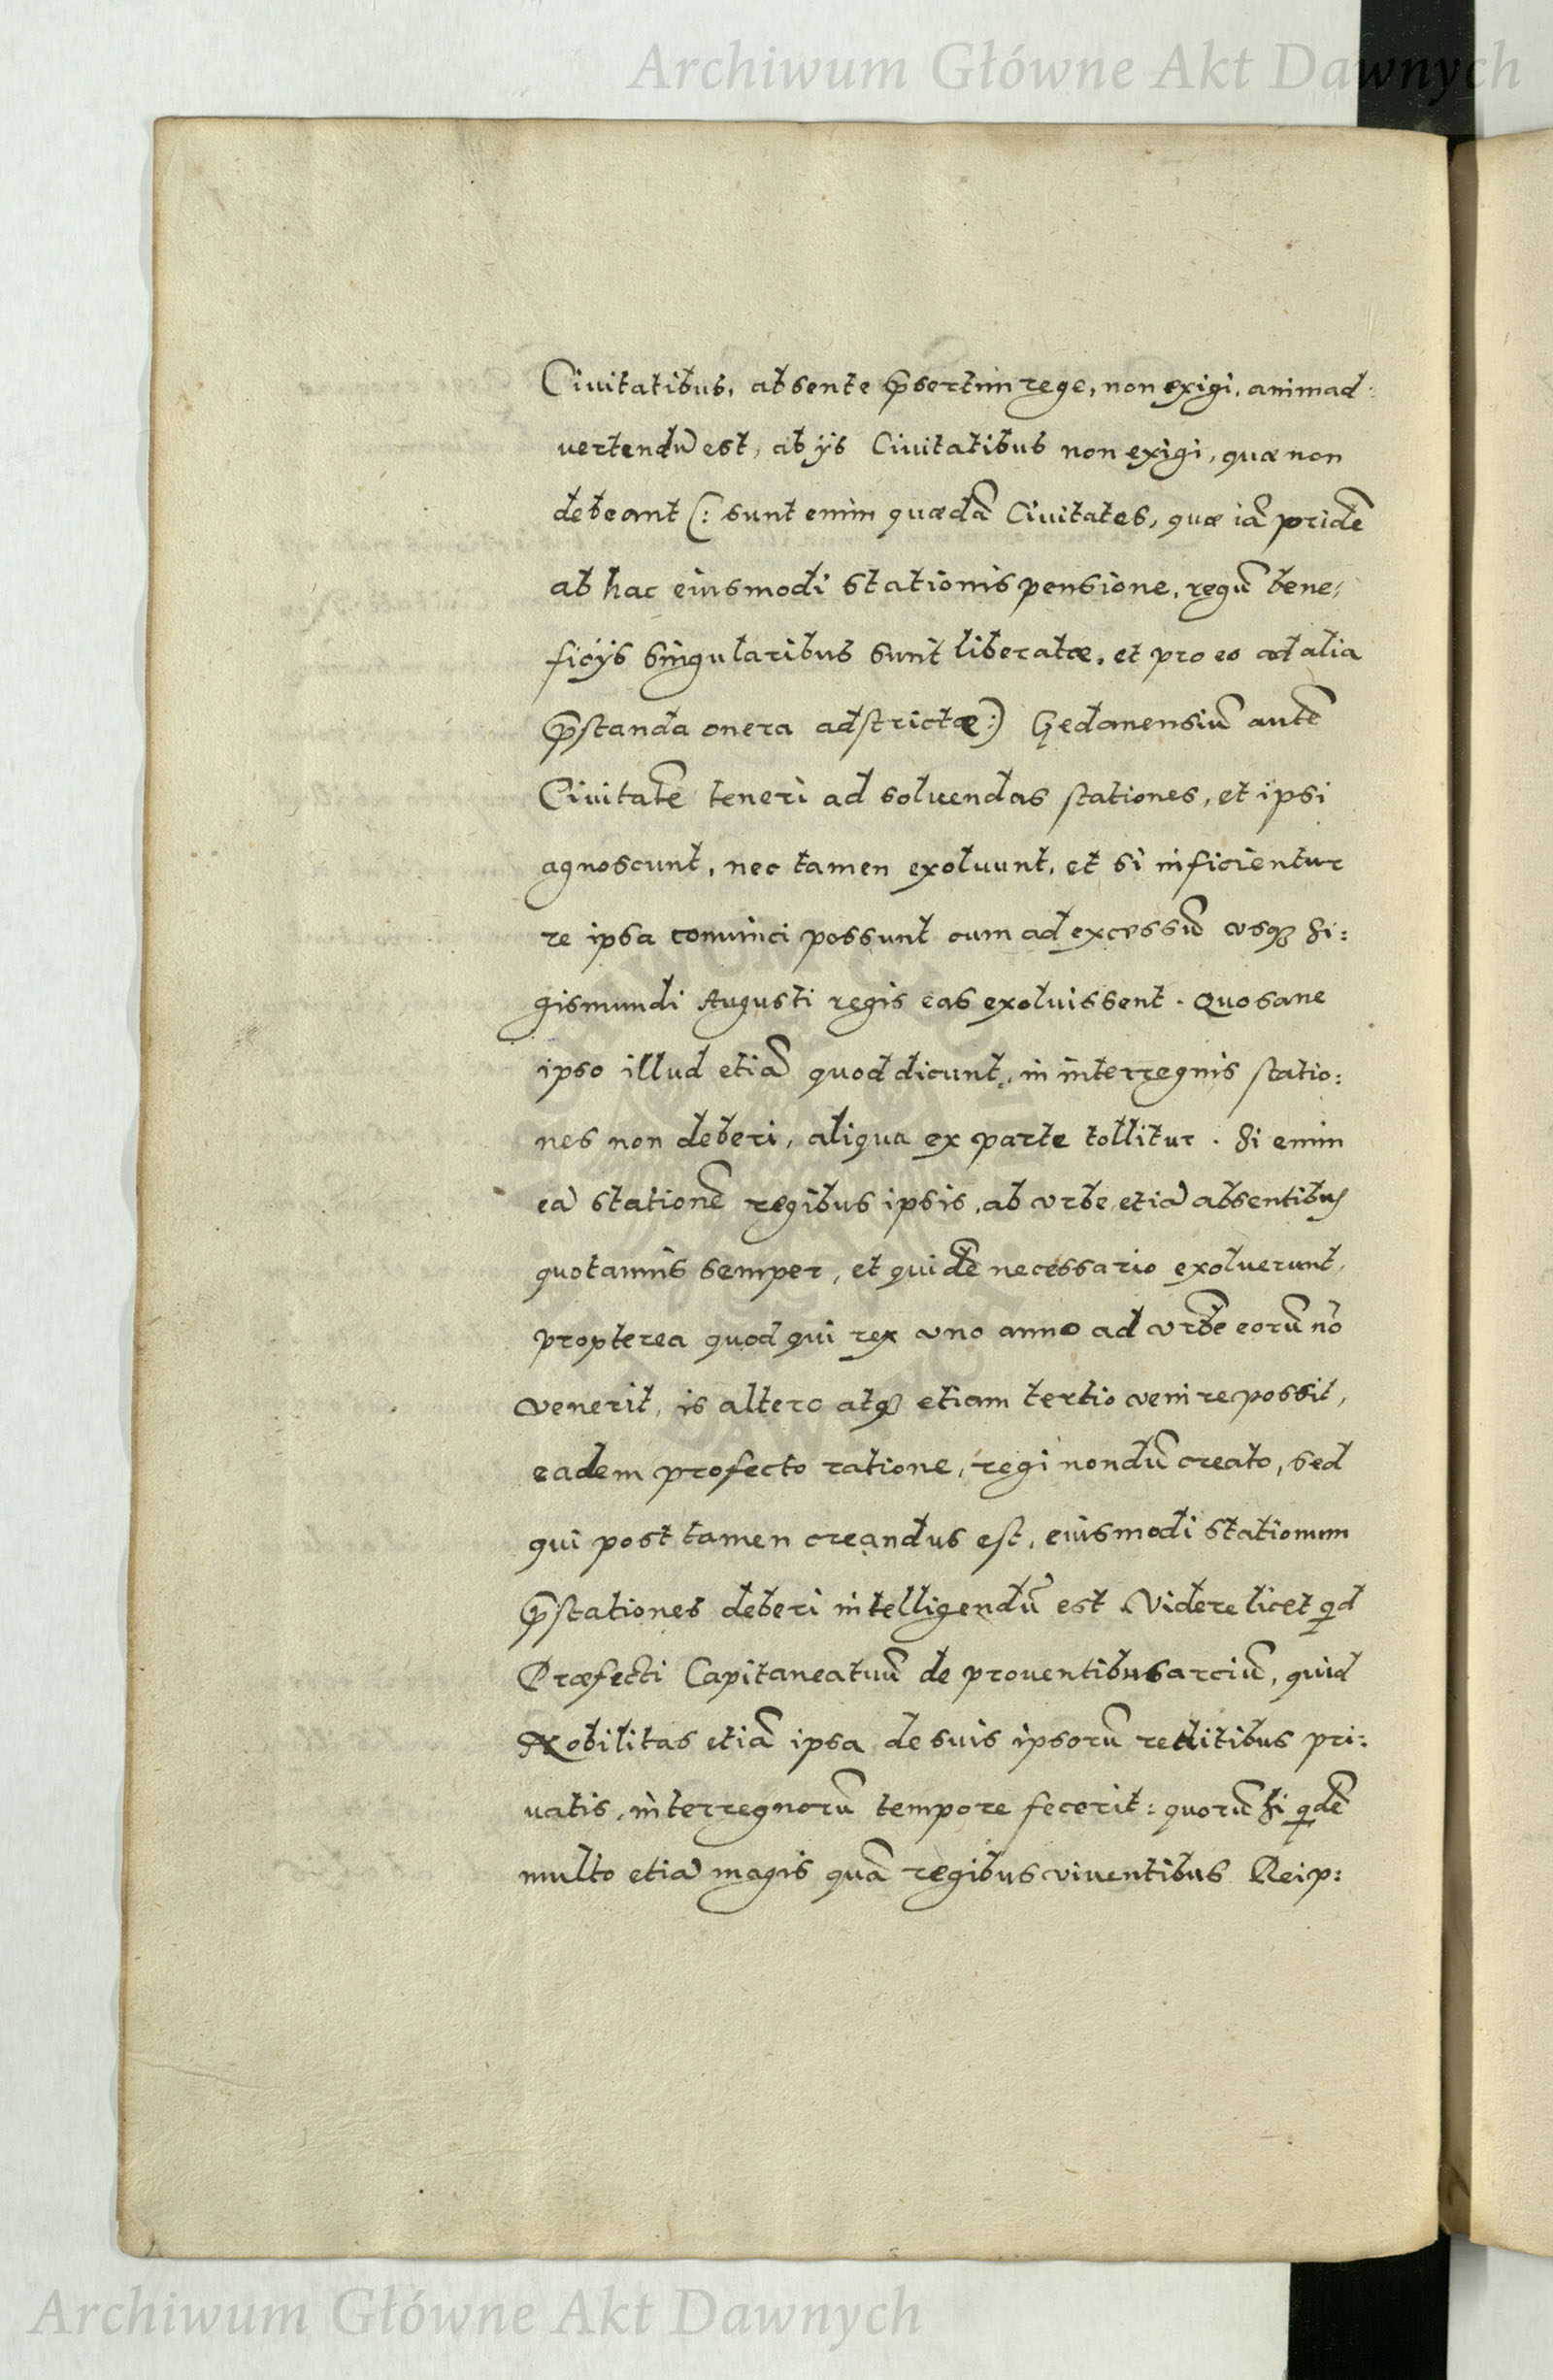 Archiwum Główne Akt Dawnych
Ciuitatibus, absente p̃sertim rege, non exigi, animad:
vertendũ est, ab ijs Ciuitatibus non exigi, quæ non
debeant (: sunt enim quædã Ciuitates, quæ iã pridẽ
ab hac eiusmodi stationis pensione, regũ bene,
ficijs singularibus sunt liberatæ, et pro eo ad alia
p̃standa onera adstrictæ :) Gedanensiũ autẽ
Ciuitatẽ teneri ad soluendas stationes, et ipsi
agnoscunt, nec tamen exoluunt, et si inficientur
re ipsa conuinci possunt cum ad excessũ vsq3 Si:
gismundi Augusti regis eas exoluissent. Quo sane
ipso illud etiã quod dicunt, in interregnis statio:
nes non deberi, aliqua ex parte tollitur. Si enim
eã stationẽ regibus ipsis, ab vrbe etiã absentibus
quotannis semper, et quidẽ necessario exoluerunt,
propterea quod qui rex vno anno ad vrbẽ eorũ nõ
venerit, is altero atq3 etiam tertio venire possit,
eadem profecto ratione, regi nondũ creato, sed
qui post tamen creandus est, eiusmodi stationum
p̃stationes deberi intelligendũ est. Videre licet qid
Præfecti Capitaneatuũ de prouentibus arciũ, quid
Nobilitas etiã ipsa de suis ipsorũ reditibus pri:
uatis, interregnorũ tempore fecerit: quorũ si qidẽ
multo etiã magis quã regibus viuentibus Reip:
Archiwum Główne Akt Dawnych